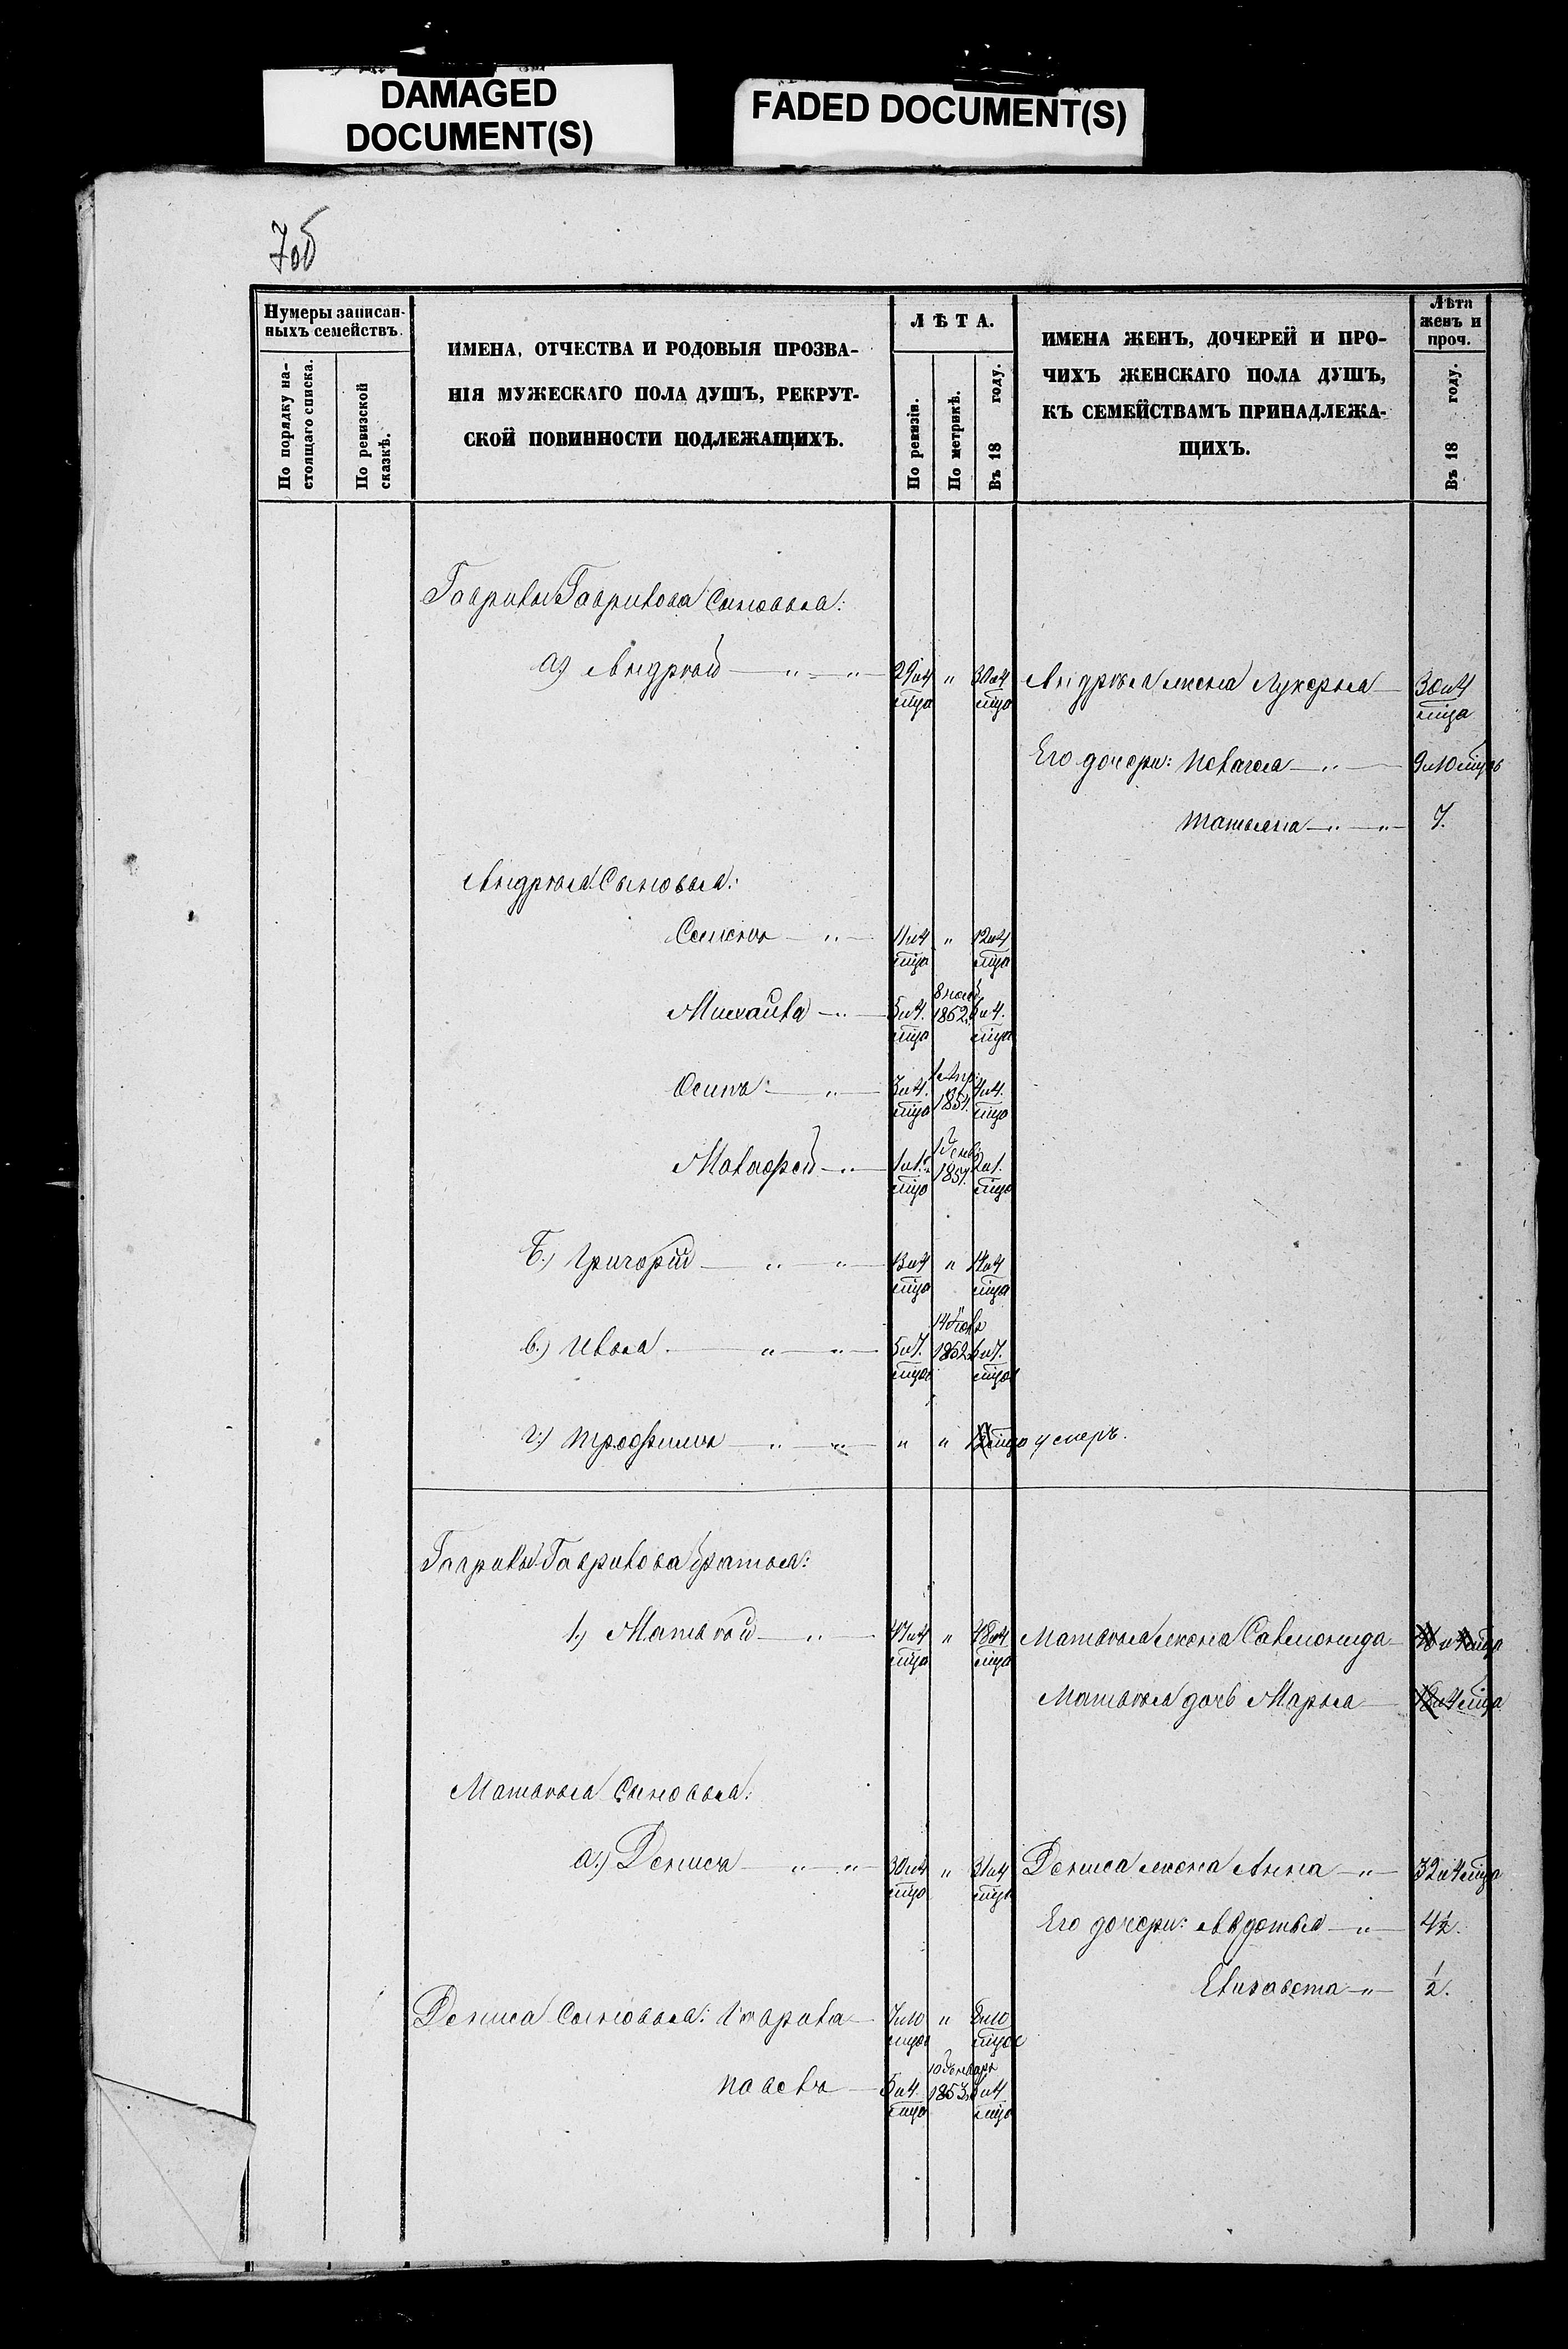 DAMAGED
DOCUMENT(S)
FADED DOCUMENT(S)
7об
Нумеры записан-
ныхъ семействъ.
По порядку на-
стоящаго списка.
По ревизской
сказкѣ.
ИМЕНА, ОТЧЕСТВА И РОДОВЫЯ ПРОЗВА-
НІЯ МУЖЕСКАГО ПОЛА ДУШЪ, РЕКРУТ-
СКОЙ ПОВИННОСТИ ПОДЛЕЖАЩИХЪ.
ЛѢТА.
По ревизіи.
По метрикѣ.
Въ 18 году.
ИМЕНА ЖЕНЪ, ДОЧЕРЕЙ И ПРО-
ЧИХЪ ЖЕНСКАГО ПОЛА ДУШЪ,
КЪ СЕМЕЙСТВАМЪ ПРИНАДЛЕЖА-
ЩИХЪ.
Лѣта
женъ и
проч.
Въ 18 году.
Гаврилы Гаврилова сыновья:
а.) Андрѣй — " — " — 29 и 4 мца " 30 и 4 мца Андрѣя жена Лукерья — 30 и 4 мца
Его дочери: Пелагея — " — 9 и 10 мцъ
Татьяна — " — " — 7.
Андрѣя сыновья:
Семенъ — " — 11 и 4 мца " 12 и 4 мца
Михайла — " — 5 и 4. мца 8 1852. 6 и 4. мца
Осипъ — " — 3 и 4. мца 1 Апр: 1854. 4 и 4. мца
Малафей — " — 1 и 1. мца 1857. 2 и 1. мца
Б.) Григорій — " — " — 13 и 4 мца " 14 и 4 мца
в.) Илья — " — " — 5 и 7. 14 1852. 6 и 7.
г.) Трофимъ — " — " — " " умеръ.
Гаврилы Гаврилова братья:
1.) Матвѣй — " — 47 и 4 мца " 48 и 4 мца Матвѣя жена
Матвѣя дочь Марья — 18 и 4 мца
Матвѣя сыновья:
а.) Денисъ — " — " — 30 и 4 мца " 31 и 4 мца Дениса жена Анна — " — 32 и 4 мца
Его дочери: Авдотья — " — 4½.
Елизавета — " — ½.
Дениса сыновья: Гаврила — 7 и 10 " 8 и 10
Павелъ — 5 и 4 мца 10 Января 1853. 6 и 4 мца